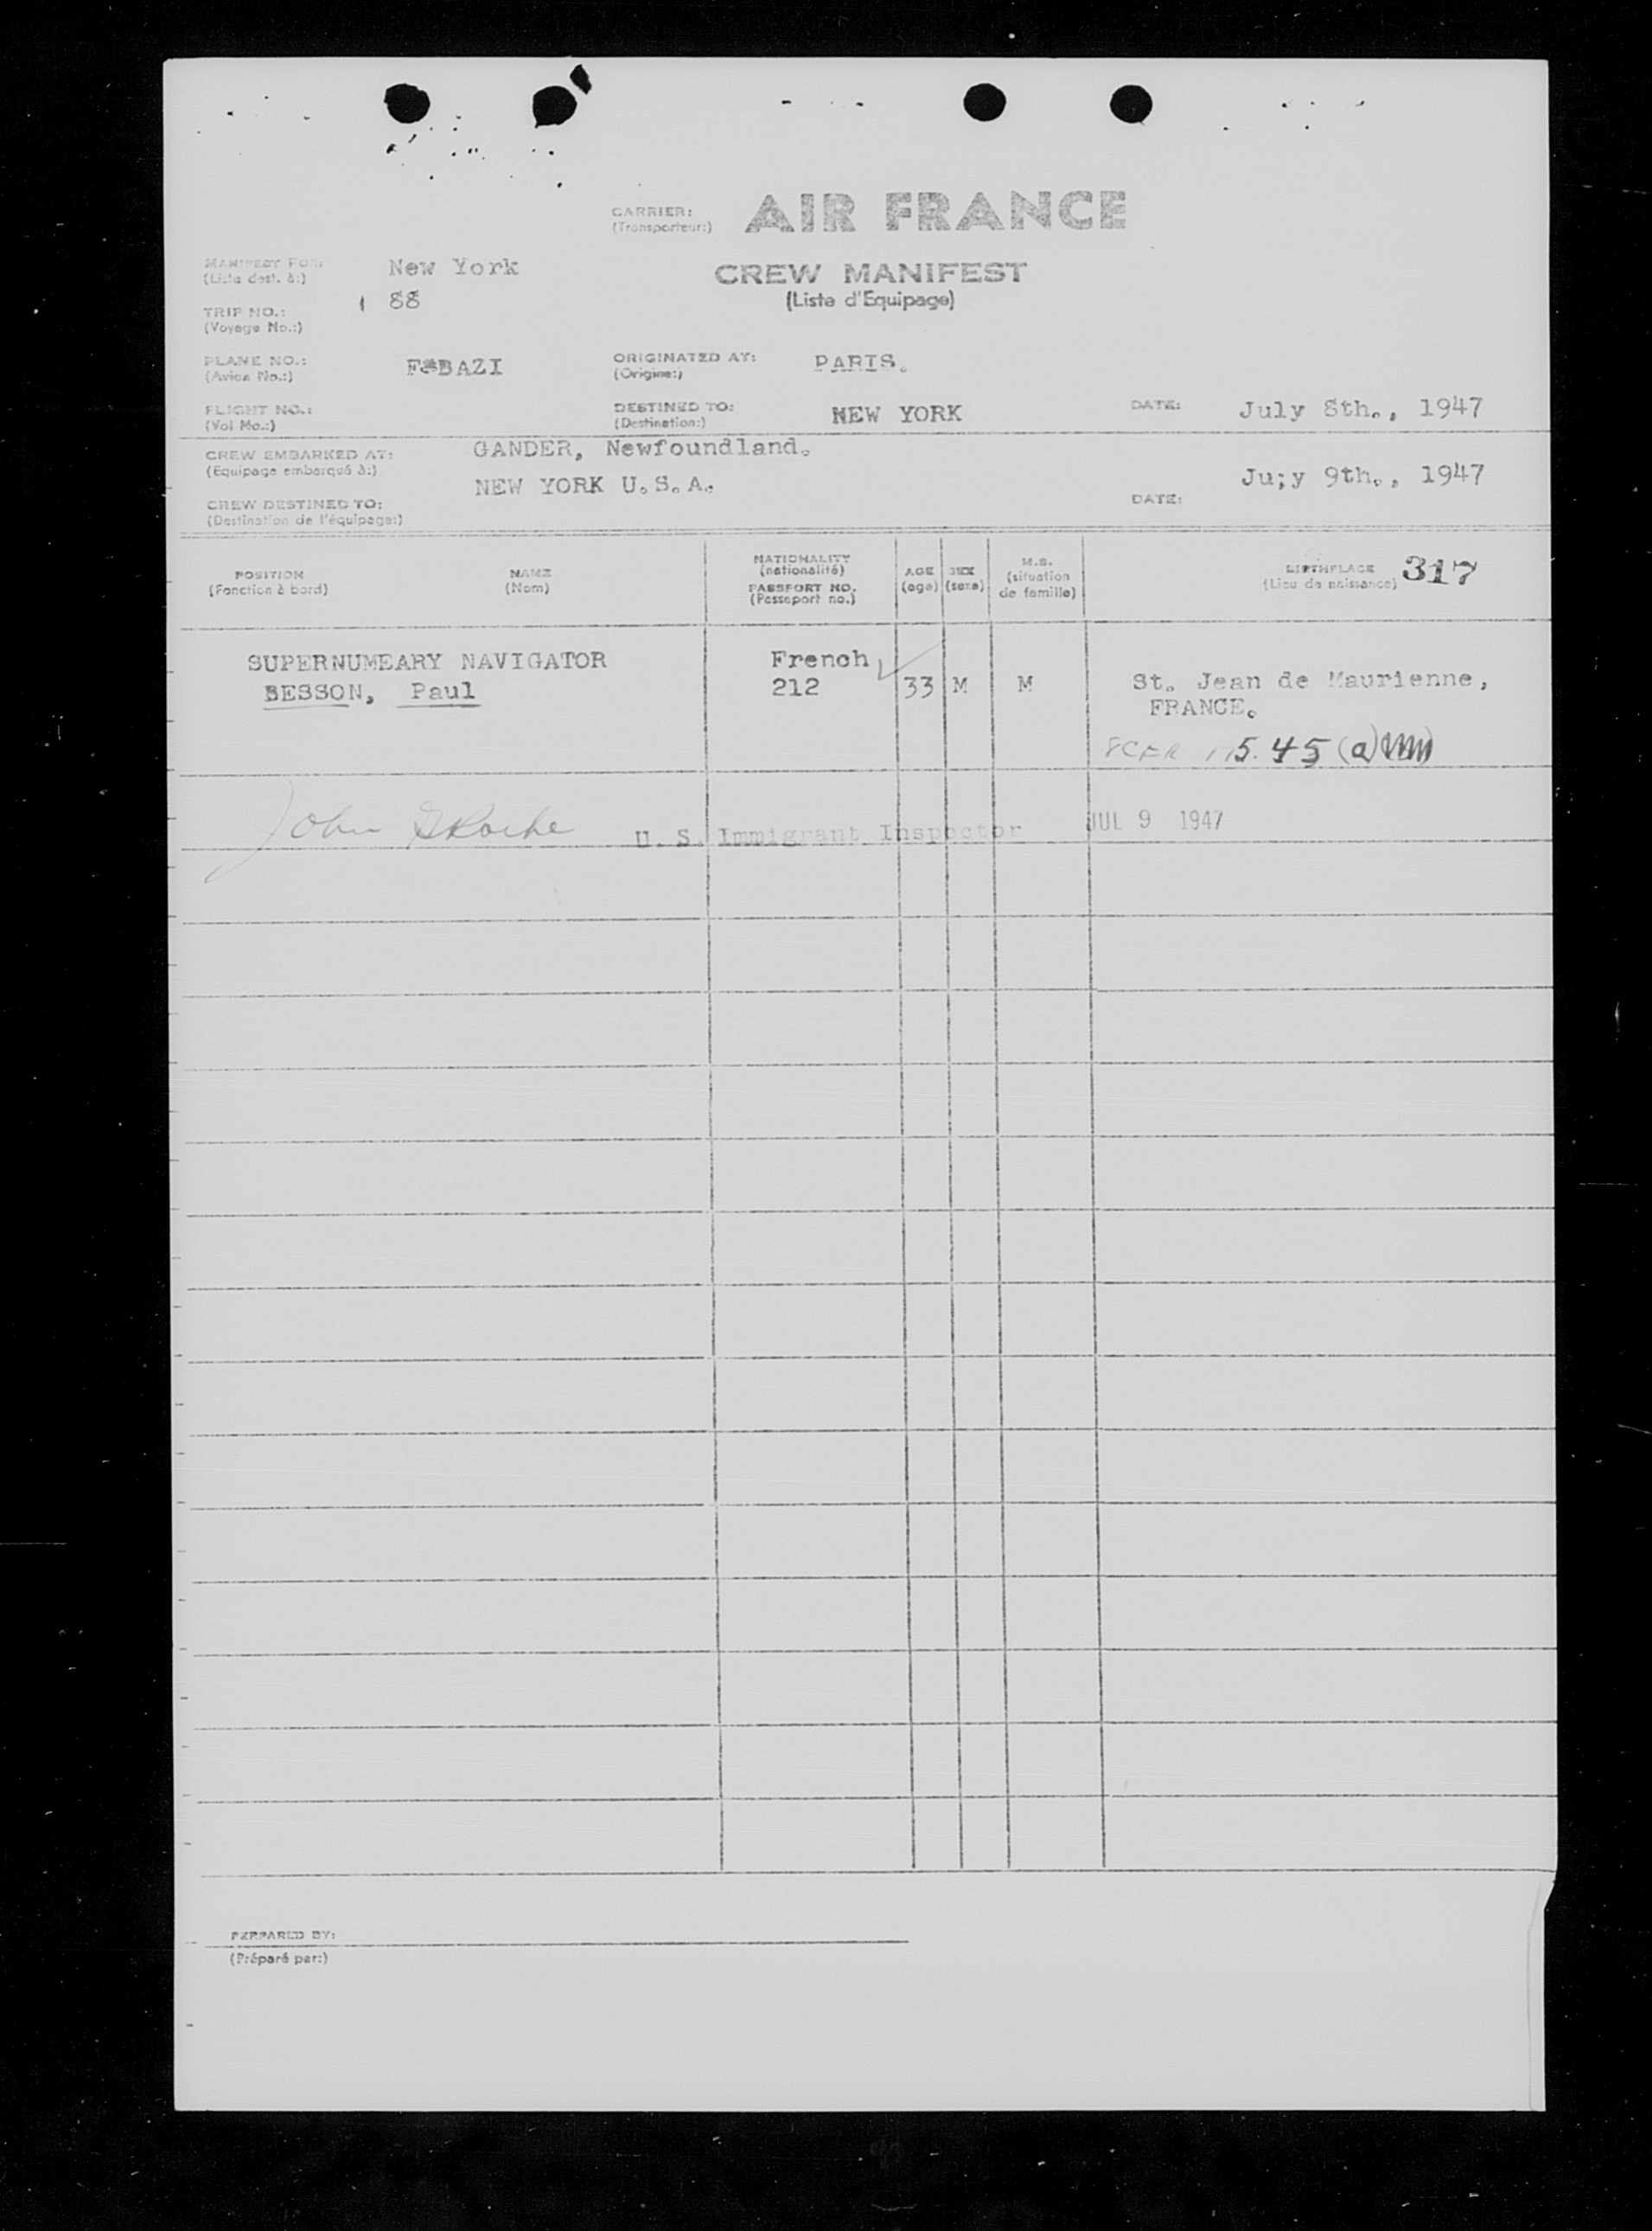 CARRIER: AIR FRANCE
(Transporteur:)
MANIFEST FOR: New York
(Liste dest. à:)
CREW MANIFEST
(Liste d'Equipage)
TRIP NO.: 88
(Voyage No.:)
PLANE NO.: F-BAZI
(Avion No.:)
ORIGINATED AT: PARIS.
(Origine:)
FLIGHT NO.:
(Vol No.:)
DESTINED TO: NEW YORK
(Destination:)
DATE: July 8th., 1947
CREW EMBARKED AT: GANDER, Newfoundland.
(Equipage embarqué à:)
CREW DESTINED TO: NEW YORK U.S.A.
(Destination de l'équipage:)
DATE: Ju;y 9th., 1947
POSITION
(Fonction à bord)
NAME
(Nom)
NATIONALITY
(nationalité)
PASSPORT NO.
(Passeport no.)
AGE
(age)
SEX
(sexe)
M.S.
(situation
de famille)
BIRTHPLACE
(Lieu de naissance)
317
SUPERNUMEARY NAVIGATOR
BESSON, Paul
French
212
33 M M
St. Jean de Maurienne,
FRANCE.
5.45 (a)
John
U. S. Immigrant Inspector
JUL 9 1947
PREPARED BY:
(Préparé par:)